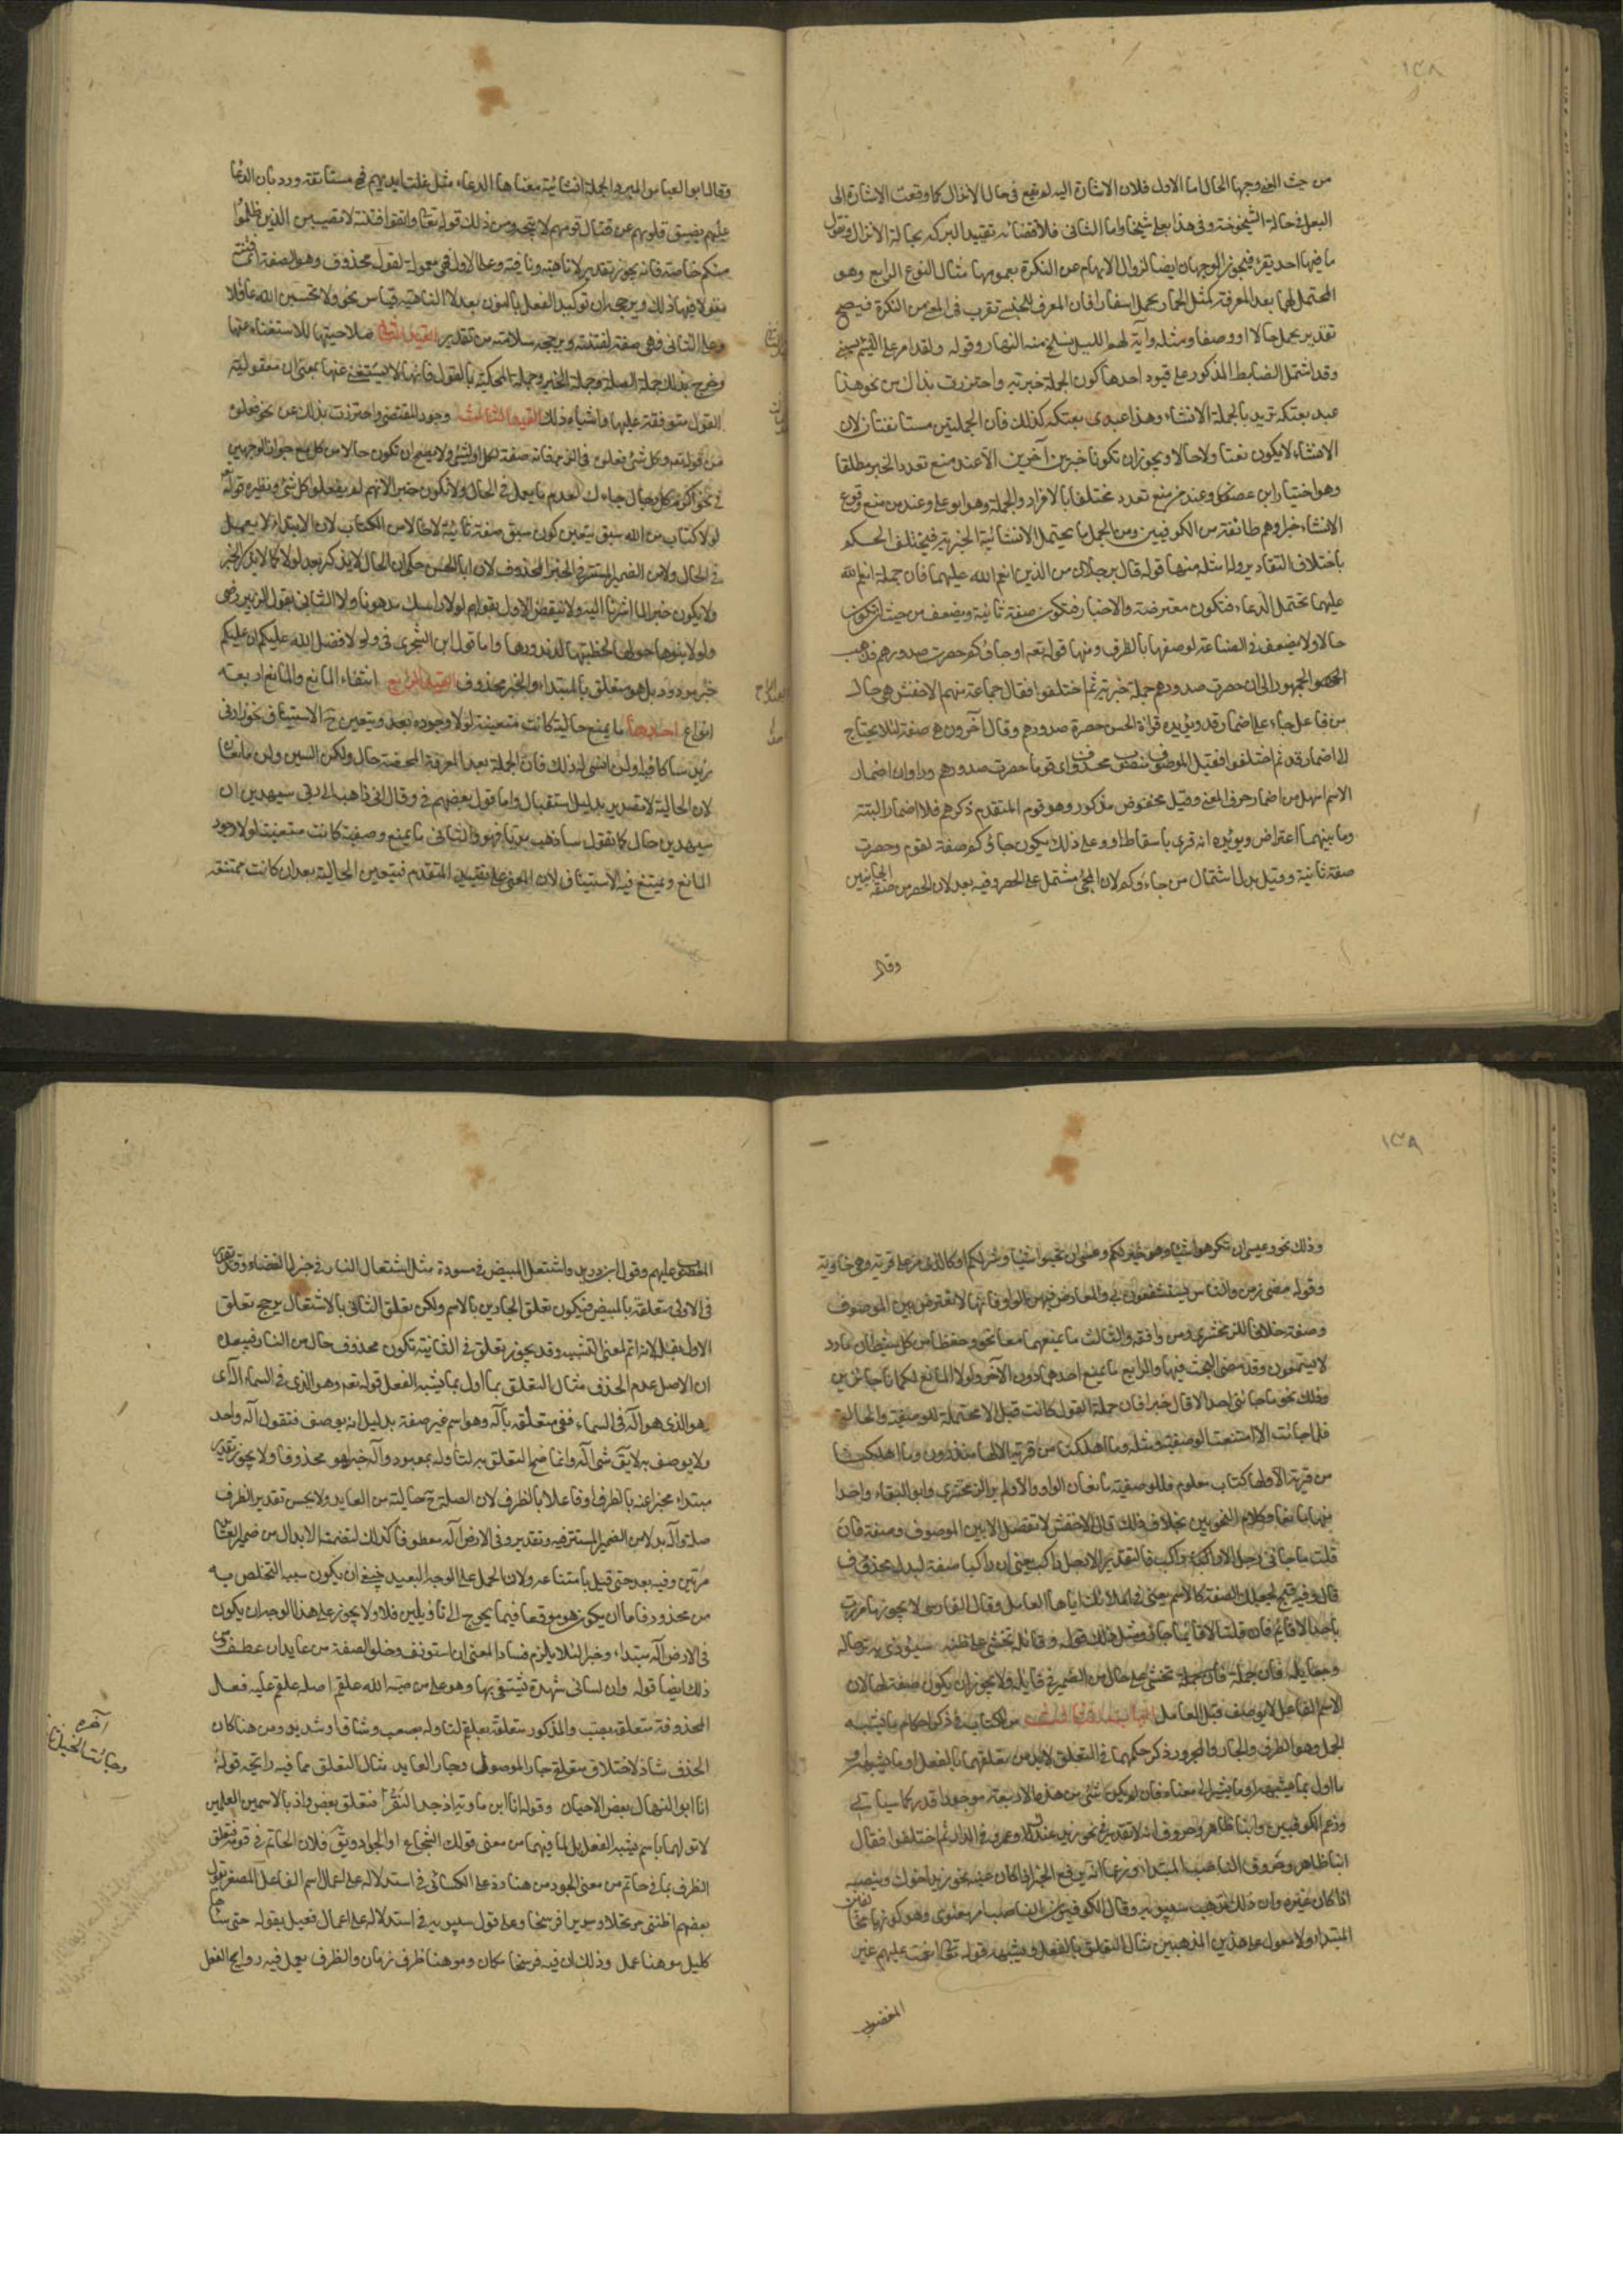 ١٣٨
من حيث المعنى وجهها الحال اما الاول فلان الاشارة اليه لم تقع في حال الانزال كما وقعت الاشارة الى
البعل في حالة الشيخوخة في وهذا بعلي شيخا واما الثاني فلاقتضائه تقييد البركة بحالة الانزال وتقول
ما فيها احد يقرء فيجوز الوجهان ايضا لزوال الابهام عن النكرة بعمومها مثال النوع الرابع وهو
المحتمل لهما بعد المعرفة كمثل الحمار يحمل اسفارا فان المعرف الجنسي تقرب في المعنى من النكرة فيصح
تقدير يحمل حالا او وصفا ومثله وآية لهم الليل نسلخ منه النهار وقوله ولقد امر على اللئيم يسبني
وقد اشتمل الضابط المذكور على قيود احدها كون الجملة خبرية واحترزت بذلك من نحو هذا
عبد بعتكه تريد بالجملة الانشاء وهذا عبدى بعتكه كذلك فان الجملتين مستانفتان لان
الانشاء لا يكون نعتا ولا حالا ويجوز ان تكونا خبرين آخرين الا عند من منع تعدد الخبر مطلقا
وهو اختيار ابن عصفور وعند من منع تعدد مختلفا بالافراد والجملة وهو ابو على وعند من منع وقوع
الانشاء خبرا وهم طائفة من الكوفيين ومن الجمل ما يحتمل الانشائية الخبرية فيختلف الحكم
باختلاف التقادير ولها مثلة منها قوله قال رجلان من الذين انعم الله عليهما فان جملة انعم الله
عليهما تحتمل الدعاء فتكون معترضة والاخبار فتكون صفة ثانية ويضعف من حيث ان تكون
حالا ولا يضعف في الصناعة لوصفها بالظرف ومنها قوله تعم او جاؤكم حصرت صدورهم فذهب
الجمهور الى ان حصرت صدورهم جملة خبرية ثم اختلفوا فقال جماعة منهم الاخفش هى حال
من فاعل جاء على اضمار قد ويؤيده قراءة الحسن حصرة صدورهم وقال آخرون هى صفة لئلا يحتاج
الى اضمار قد ثم اختلفوا فقيل الموصوف منصوب محذوف اى قوما حصرت صدورهم وراوا ان اضمار
الاسم اسهل من اضمار حرف المعنى وقيل مخفوض مذكور وهو قوم المتقدم ذكرهم فلا اضمار البتة
وما بينهما اعتراض ويؤيده انه قرى باسقاط او وعلى ذلك فيكون جاؤكم صفة لقوم وحصرت
صفة ثانية وقيل بدل اشتمال من جاءوكم لان المجئ مشتمل على الحصر وفيه بعد لان الحصر من صفة الجائين
وقال
وقال ابو العباس المبرد الجملة انشائية معناها الدعاء مثل غلت ايديهم فهى مستانفة ورد بان الدعا
عليهم بضيق قلوبهم عن قتال قومهم لا يتجه ومن ذلك قوله تعا واتقوا فتنة لا تصيبن الذين ظلموا
منكم خاصة فانه يجوز تقدير لا ناهية ونافية وعلى الاول فهى معمولة لقول محذوف وهو الصفة اى فتنة
مقولا فيها ذلك ويرجحه ان توكيد الفعل بالنون بعد لا الناهية قياس نحو ولا تحسبن الله غافلا
وعلى الثانى فهى صفة لفتنة ويرجحه سلامته من تقدير القيد الثانى صلاحيتها للاستغناء عنها
وخرج بذلك جملة الصلة وجملة الخبر وجملة المحكية بالقول فانها لا يستغنى عنها بمعنى ان معقولية
القول متوقفة عليها واشباه ذلك القيد الثالث وجود المقتضى واحترزت بذلك عن نحو فعلوه
من قوله تعم وكل شئ فعلوه في الزبر فانه صفة لكل او لشئ ولا يصح ان تكون حالا من كل مع جواز الوجهين
في نحو اكرم كل رجل جاءك لعدم ما يعمل في الحال ولا تكون خبرا لانهم لم يفعلوا كل شئ ونظيره قوله تعا
لولا كتاب من الله سبق يتعين كون سبق صفة ثانية لا حالا من الكتاب لان الابتداء لا يعمل
في الحال ولا من الضمير المستتر في الخبر المحذوف لان ابا الحسن حكى ان الحال لا يذكر بعد لولا كما لا يذكر الخبر
ولا يكون خبرا لما اشرنا اليه ولا ينقض الاول بقولهم لولا راسك مدهونا ولا الثانى بقول الزبير رضى
ولولا بنوها حولها لخطبتها لندورهما واما قول ابن الشجرى في ولولا فضل الله عليكم ان عليكم
خبر مردود بل هو متعلق بالمبتداء والخبر محذوف القيد الرابع انتفاء المانع والمانع اربعة
انواع احدها ما يمنع حالية كانت متعينة لولا وجوده بعد ويتعين ح الاستيناف نحو زارنى
زيد ساكافئه او لن انسى له ذلك فان الجملة بعد المعرفة المحضة حال ولكن السين ولن مانعتا
لان الحالية لا تصدر بدليل استقبال واما قول بعضهم في وقال انى ذاهب الى ربى سيهدين ان
سيهدين حال كما تقول ساذهب مهديا فهو والثانى ما يمنع وصفية كانت متعينة لولا وجود
المانع ويمتنع فيه الاستيناف لان المعنى على تقييد المتقدم فيتعين الحالية بعد ان كانت ممتنعة
١٣٨
وذلك نحو وعسى ان تكرهوا شيئا وهو خير لكم وعسى ان تحبوا شيئا وهو شر لكم او كالذى مر على قرية وهى خاوية
وقوله مضى زمن والناس يستشفعون بى والمعارض فيهن الواو فانها لا تعترض بين الموصوف
وصفته خلافا للزمخشرى ومن وافقه والثالث ما يمنعهما معا نحو وحفظا من كل شيطان مارد
لا يسمعون وقد مضى البحث فيها والرابع ما يمنع احدهما دون الآخر ولولا المانع لكانا جائزين
وذلك نحو ما جائنى احد الا قال خيرا فان جملة القول كانت قبل الا محتملة للوصفية والحالية
فلما جائت الا امتنعت الوصفية ومثله وما اهلكنا من قرية الا لها منذرون وما اهلكنا
من قرية الا ولها كتاب معلوم فللوصفية مانعان الواو والا ولم ير الزمخشرى وابو البقاء واحدا
منهما مانعا وكلام النحويين بخلاف ذلك قال الاخفش لا تفصل الا بين الموصوف وصفته فان
قلت ما جائنى رجل الا راكب فالتقدير الا رجل راكب يعنى ان راكبا صفة لبدل محذوف
قال وفيه قبح لجعلك الصفة كالاسم يعنى في ايلائك اياها العامل وقال الفارسى لا يجوز ما مررت
باحد الا قائم فان قلت الا قائما جاز ومثل ذلك قوله وقائلة تخشى على اظنه سيودى به ترحاله
وجعايله فان جملة تخشى على حال من الضمير في قائلة ولا يجوز ان يكون صفة لها لان
الاسم الفاعل لا يوصف قبل العمل الباب الثالث من الكتاب في ذكر احكام ما يشبه
الجمل وهو الظرف والجار والمجرور ذكر حكمهما في التعلق لابد من تعلقهما بالفعل او ما يشبهه او
ما اول بما يشبهه او ما يشير الى معناه فان لم يكن شئ من هذه الاربعة موجودا قدر كما سياتى
وزعم الكوفيون وابنا طاهر وخروف انه لا تقدير في نحو زيد عندك وعمرو في الدار ثم اختلفوا فقال
ابنا طاهر وخروف الناصب المبتداء وزعما انه يرفع الخبر اذا كان عينه نحو زيد اخوك وينصبه
اذا كان غيره وان ذلك مذهب سيبويه وقال الكوفيون الناصب امر معنوى وهو كونهما مخالفين
المبتداء ولا معول على هذين المذهبين مثال التعلق بالفعل وشبهه قوله تعا انعمت عليهم غير
المغضوب
المغضوب عليهم وقول ابن دريد واشتعل المبيض في مسودة مثل اشتعال النار في جزل الغضا وقد تقدر
في الاولى متعلقة بالمبيض فيكون تعلق الجارين بالاسم ولكن تعلق الثانى بالاشتعال يرجح تعلق
الاول بفعله لانه اتم لمعنى التشبيه وقد يجوز تعلق في الثانية تكون محذوف حال من النار ويبعده
ان الاصل عدم الحذف مثال التعلق بما اول بما يشبه الفعل قوله تعم وهو الذى في السماء آله اى
هو الذى هو آله في السماء ففى متعلقة بآله وهو اسم غير صفة بدليل انه يوصف فتقول آله واحد
ولا يوصف به لا يق شئ آله وانما صح التعلق به لتاوله بمعبود وآله خبر لهو محذوفا ولا يجوز تقدير
مبتداء مخبرا عنه بالظرف او فاعلا بالظرف لان الصلة ح خالية من العايد ولا يحسن تقدير الظرف
صلة وآله بدلا من الضمير المستتر فيه وتقدير وفي الارض آله معطوفا كذلك لتضمنه الابدال من ضمير العائد
مرتين وفيه بعد حتى قيل بامتناعه ولان الحمل على الوجه البعيد ينبغى ان يكون سببه التخلص به
من محذور فاما ان يكون هو موقعا فيما يحوج الى تاويلين فلا ولا يجوز على هذا الوجه ان يكون
في الارض آله مبتداء وخبرا لئلا يلزم فساد المعنى ان استونف وخلو الصفة من عايد ان عطف
ذلك ايضا قوله وان لسانى شهدة يشتفى بها وهو على من صبه الله علقم اصله علقم عليه فعلى
المحذوفة متعلقة بصبه والمذكور متعلقة بعلقم لتاوله بصعب وشاق او شديد ومن هنا كان
الحذف شاذ لاختلاف متعلق جار الموصول وجار العايد مثال التعلق مما فيه رائحته قوله
انا ابو المنهال بعض الاحيان وقوله انا ابن ماوية اذ جد النقر فتعلق بعض واذ بالاسمين العلمين
لا تاولهما باسم يشبه الفعل بل لما فيهما من معنى قولك الشجاع او الجواد ويق فلان الحاتم في قومه فتعلق
الظرف بما في حاتم من معنى الجود من هنا رد على الكسائى في استدلاله على اعمال اسم الفاعل المصغر بقول
بعضهم اظننى مرتحلا وسويرا فرسخا وعلى قول سيبويه في استدلاله على اعمال فعيل بقوله حتى شاها
كليل موهنا عمل وذلك ان فيه فرسخا مكان وموهنا ظرف زمان والظرف يعمل فيه روايح الفعل